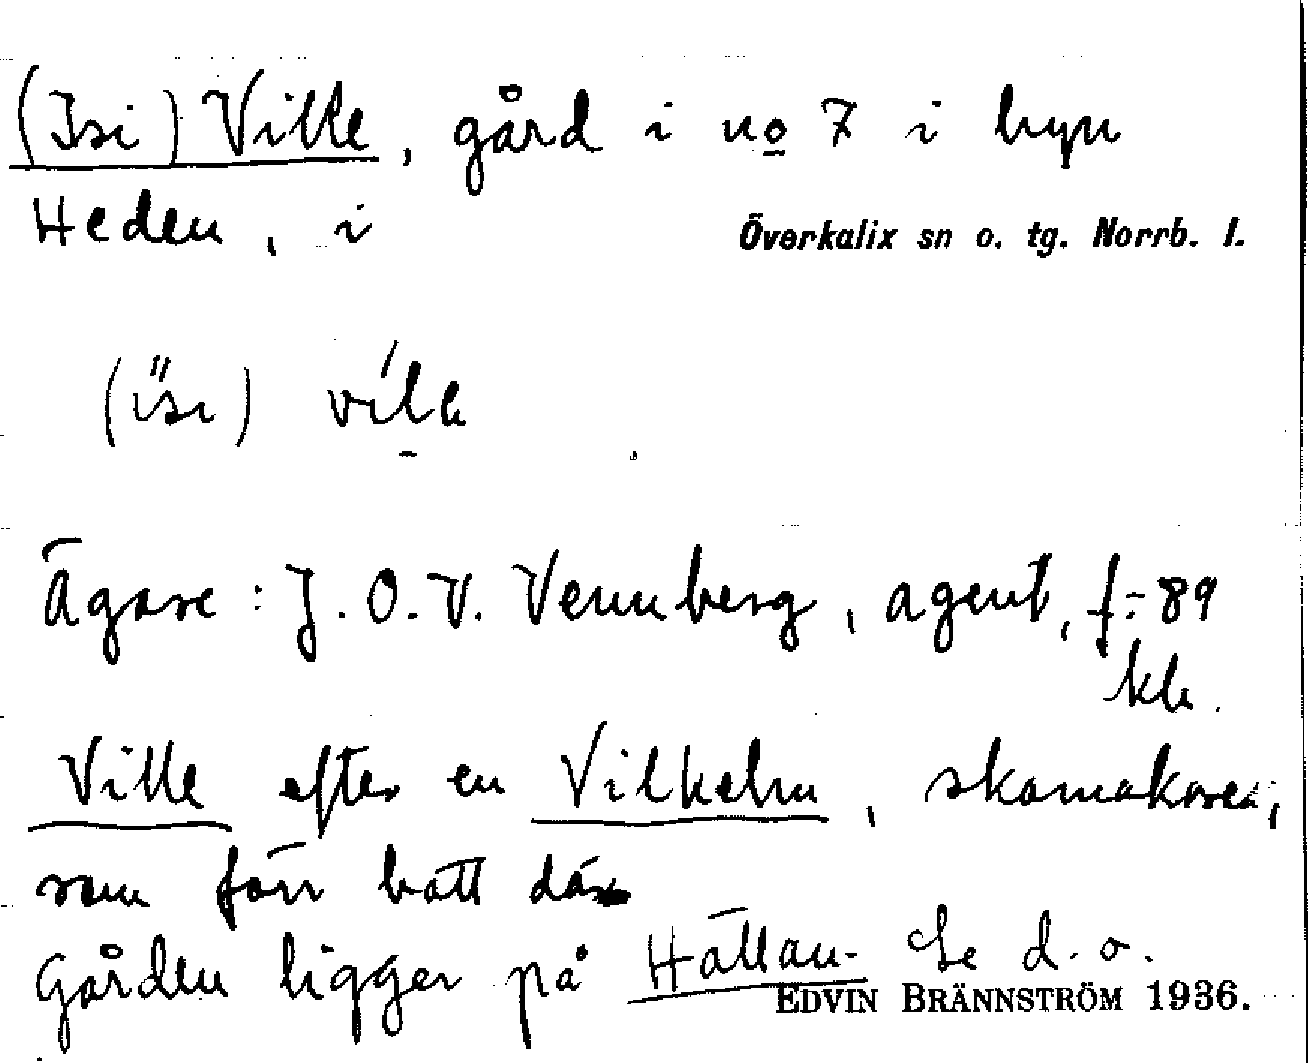 (Isi) Ville, gård i no 7 i byn
Heden, i Överkalix sn o. tg. Norrb. l.
(isi)
Ägare: J. O. V. Vennberg, agent, f. -89
Ville efter en Vilhelm, skomakare,
som förr bott där
Gården ligger på Hällan. Se d. o.
EDVIN BRÄNNSTRÖM 1936.